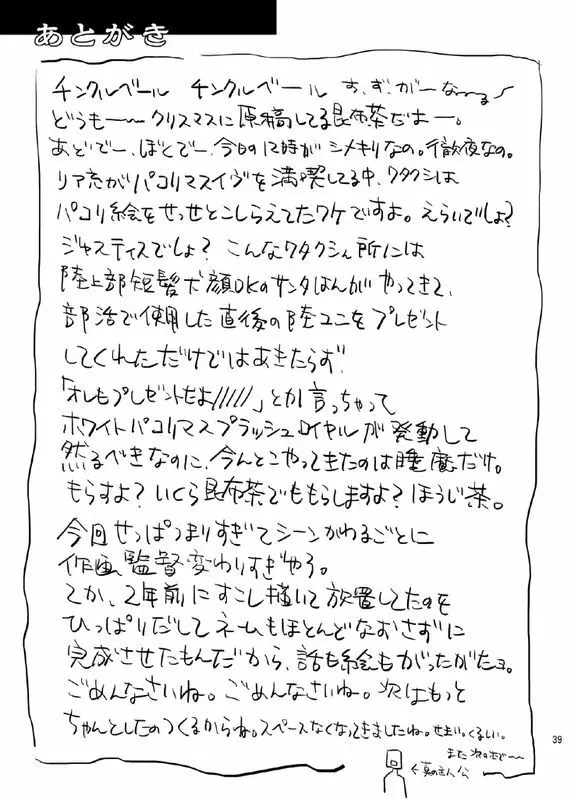 あとがき
チンクルベール チンクルベール す、ず、が、なーーる
どうもーークリスマスに原稿してる昆布茶だよー。
あどでー、ぼとでー、今日の12時がシメキリなの。徹夜なの。
リア充がパコリマスイヴを満喫してる中、ワタクシは
パコリ絵をせっせとこしらえてたワケですよ。えらいでしょ?
ジャスティスでしょ? こんなワタクシん所には
陸上部短髪犬顔DKのサンタはんがやってきて、
部活で使用した直後の陸ユニをプレゼント
してくれただけではあきたらず、
「オレもプレゼントだよ/////」とか言っちゃって
ホワイトパコリマスプラッシュロイヤルが発動して
然るべきなのに、今んとこやってきたのは睡魔だけ。
もらすよ? いくら昆布茶でももらしますよ? ほうじ茶。
今回せっぱつまりすぎてシーンがかわるごとに
作画監督変わりすぎやろ。
てか、2年前にすこし描いて放置してたのを
ひっぱりだしてネームもほとんどなおさずに
完成させたもんだから、話も絵もがったがたョ。
ごめんなさいね。ごめんなさいね。次はもっと
ちゃんとしたのつくるからね。スペースなくなってきましたね。せまい。くるしい。
また次の本でーー
←真の主人公
39